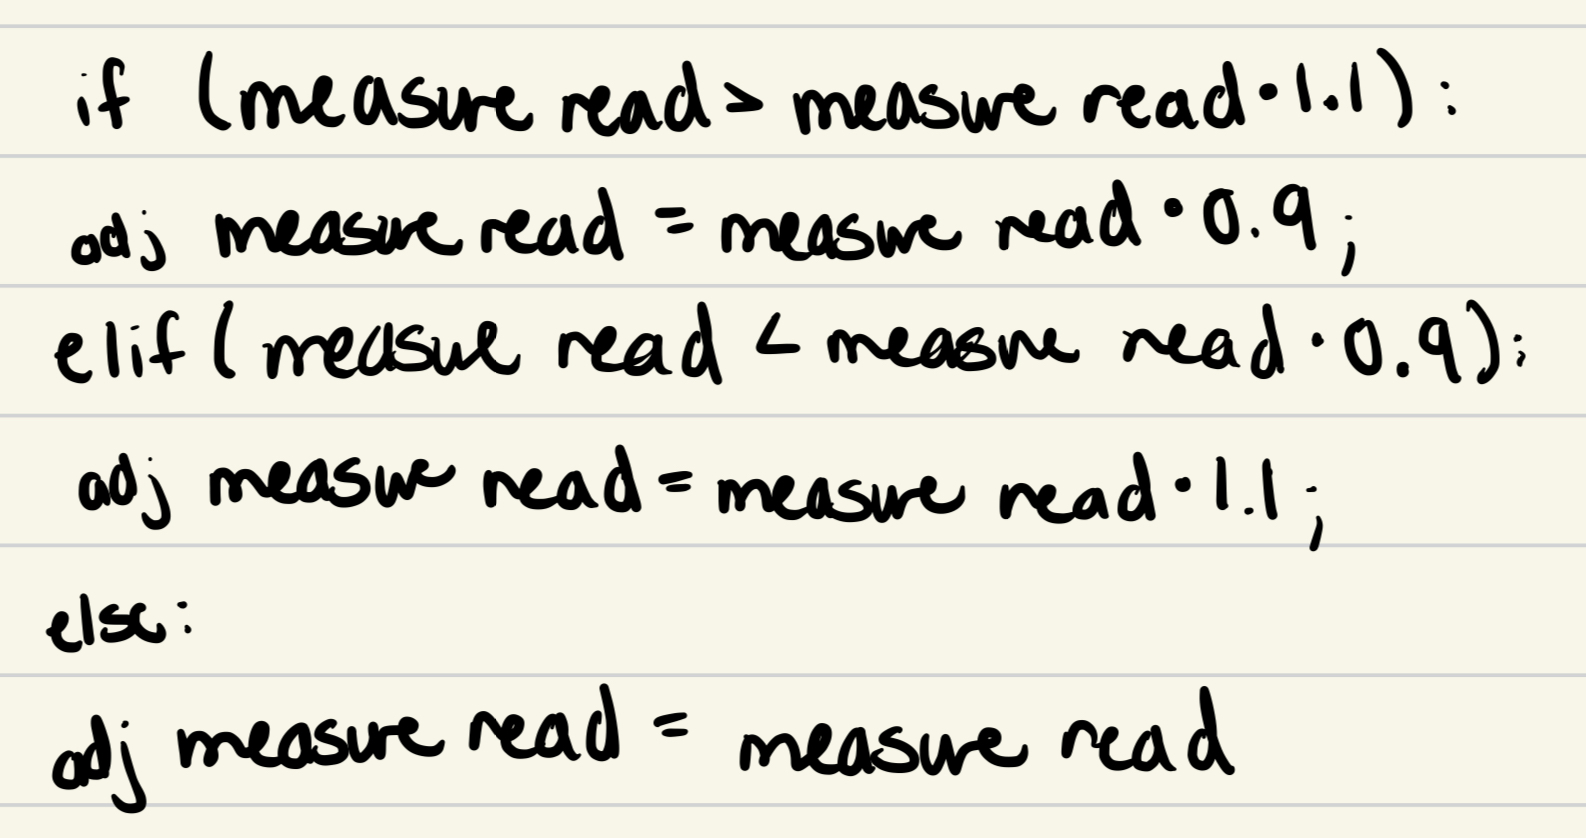 if (measure read > measure read • 1.1):
adj measure read = measure read • 0.9;
elif (measure read < measure read • 0.9):
adj measure read = measure read • 1.1;
else:
adj measure read = measure read